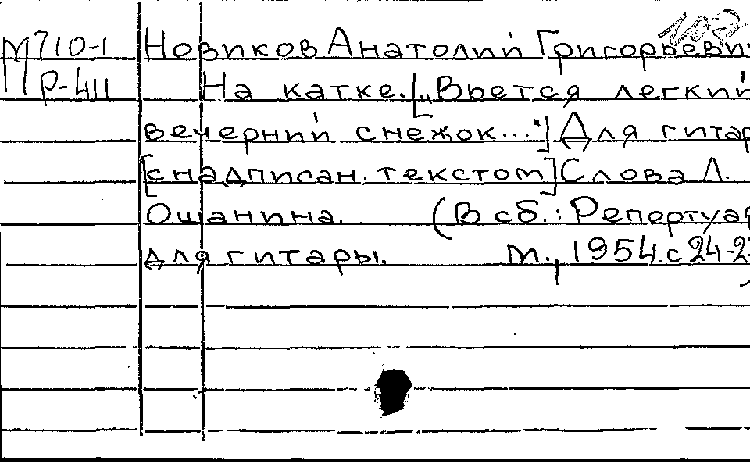 М710-1 Новиков Анатолий Григорьеви
Р-411 На катке. [„Вьется легкий
вечерний снежок..."] Для гитар
[с надписан. текстом] Слова Л.
Ошанина. (В сб.: Репертуар
для гитары. М., 1954. с 24-2